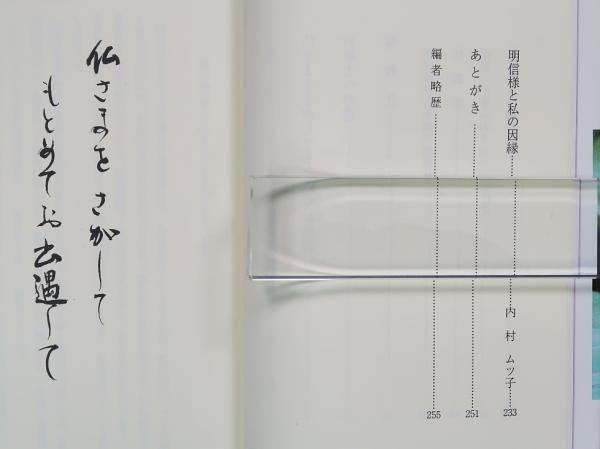 明信様と私の因縁……内村 ムツ子 233
あとがき……251
編者略歴……255
仏さまを さがして
もとめて お出遇して